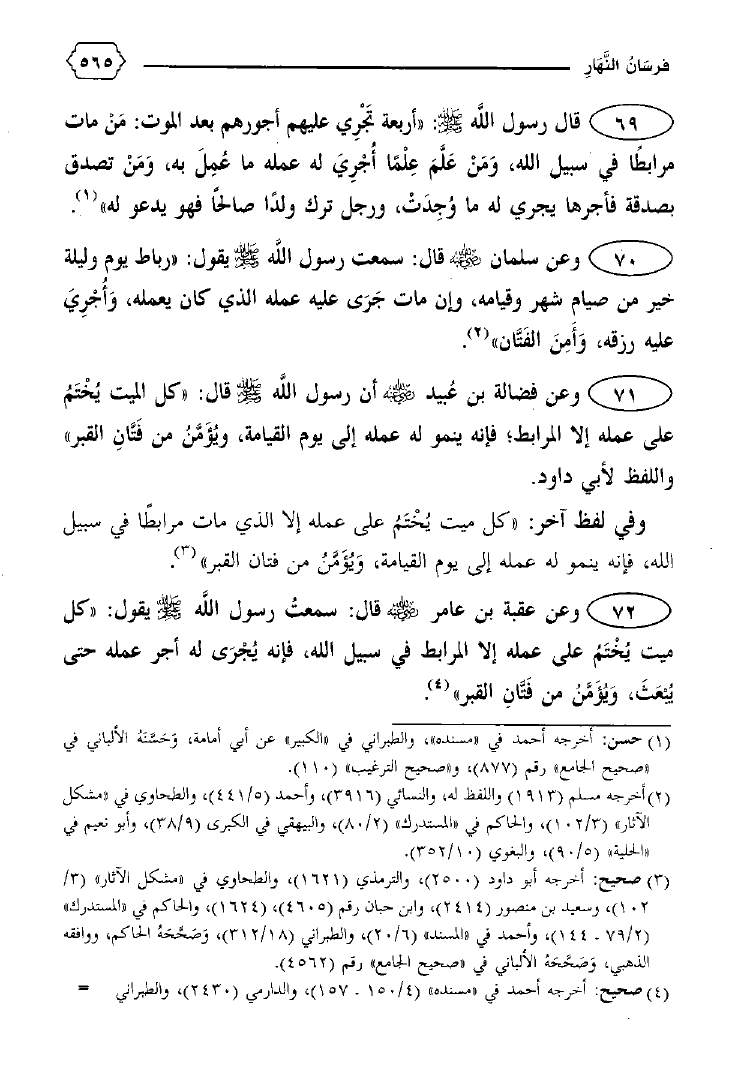 فرسَانُ النَّهَارِ ٥٦٥
٦٩ قال رسول اللَّه ﷺ: «أربعة تَجْرِي عليهم أجورهم بعد الموت: مَنْ مات
مرابطًا في سبيل الله، وَمَنْ عَلَّمَ عِلْمًا أُجْرِيَ له عمله ما عُمِلَ به، وَمَنْ تصدق
بصدقة فأجرها يجري له ما وُجِدَتْ، ورجل ترك ولدًا صالحًا فهو يدعو له»(١).
٧٠ وعن سلمان رضي الله عنه قال: سمعت رسول اللَّه ﷺ يقول: «رباط يوم وليلة
خير من صيام شهر وقيامه، وإن مات جَرَى عليه عمله الذي كان يعمله، وَأُجْرِيَ
عليه رزقه، وَأَمِنَ الفَتَّان»(٢).
٧١ وعن فضالة بن عُبيد رضي الله عنه أن رسول اللَّه ﷺ قال: «كل الميت يُخْتَمُ
على عمله إلا المرابط؛ فإنه ينمو له عمله إلى يوم القيامة، ويُؤَمَّنُ من فَتَّانِ القبر»
واللفظ لأبي داود.
وفي لفظ آخر: «كل ميت يُخْتَمُ على عمله إلا الذي مات مرابطًا في سبيل
الله، فإنه ينمو له عمله إلى يوم القيامة، وَيُؤَمَّنُ من فتان القبر»(٣).
٧٢ وعن عقبة بن عامر رضي الله عنه قال: سمعتُ رسول اللَّه ﷺ يقول: «كل
ميت يُخْتَمُ على عمله إلا المرابط في سبيل الله، فإنه يُجْرَى له أجر عمله حتى
يُبْعَثَ، وَيُؤَمَّنُ من فَتَّانِ القبر»(٤).
(١) حسن: أخرجه أحمد في «مسنده»، والطبراني في «الكبير» عن أبي أمامة، وَحَسَّنَهُ الألباني في
«صحيح الجامع» رقم (٨٧٧)، و«صحيح الترغيب» (١١٠).
(٢) أخرجه مسلم (١٩١٣) واللفظ له، والنسائي (٣٩١٦)، وأحمد (٤٤١/٥)، والطحاوي في «مشكل
الآثار» (١٠٢/٣)، والحاكم في «المستدرك» (٨٠/٢)، والبيهقي في الكبرى (٣٨/٩)، وأبو نعيم في
«الحلية» (٩٠/٥)، والبغوي (٣٥٢/١٠).
(٣) صحيح: أخرجه أبو داود (٢٥٠٠)، والترمذي (١٦٢١)، والطحاوي في «مشكل الآثار» (٣/
١٠٢)، وسعيد بن منصور (٢٤١٤)، وابن حبان رقم (٤٦٠٥)، (١٦٢٤)، والحاكم في «المستدرك»
(٧٩/٢ ـ ١٤٤)، وأحمد في «المسند» (٢٠/٦)، والطبراني (٣١٢/١٨)، وَصَحَّحَهُ الحاكم، ووافقه
الذهبي، وَصَحَّحَهُ الألباني في «صحيح الجامع» رقم (٤٥٦٢).
(٤) صحيح: أخرجه أحمد في «مسنده» (١٥٠/٤ ـ ١٥٧)، والدارمي (٢٤٣٠)، والطبراني =